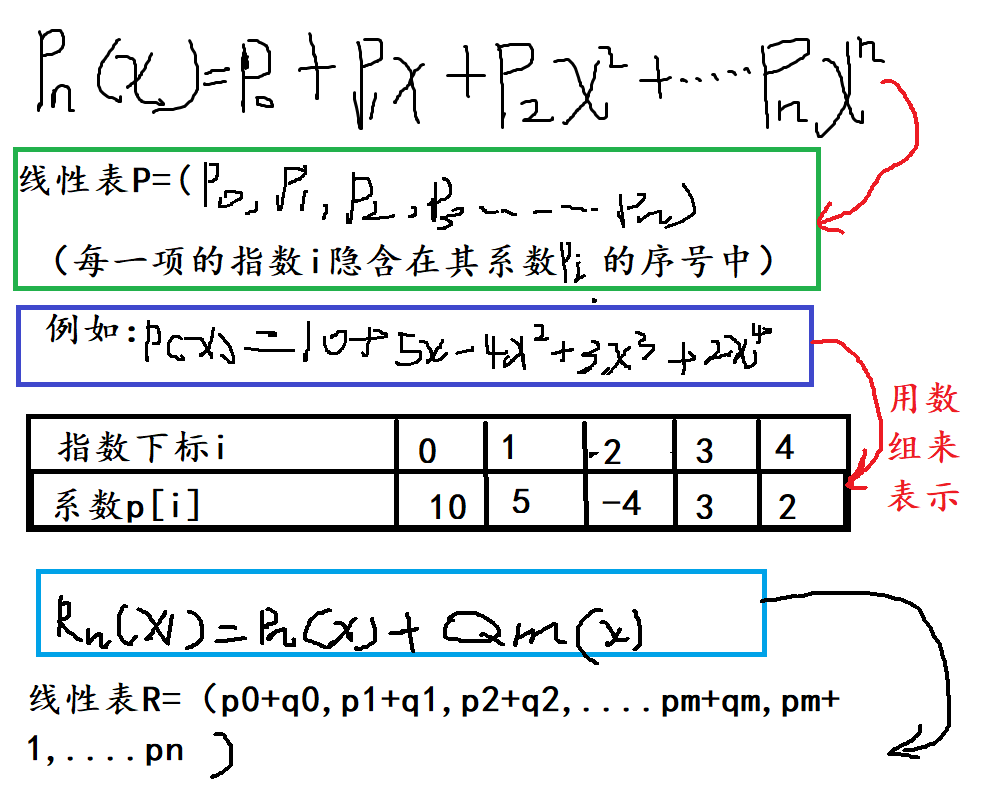 Pn(x)=P0+P1x+P2x²+······Pnxⁿ
线性表P=(P0,P1,P2,P3------Pn)
（每一项的指数i隐含在其系数Pi的序号中）
例如:P(x)=10+5x-4x²+3x³+2x⁴
用数
组来
表示
指数下标i 0 1 -2 3 4
系数p[i] 10 5 -4 3 2
Rn(x)=Pn(x)+Qm(x)
线性表R=（p0+q0,p1+q1,p2+q2,....pm+qm,pm+
1,....pn )